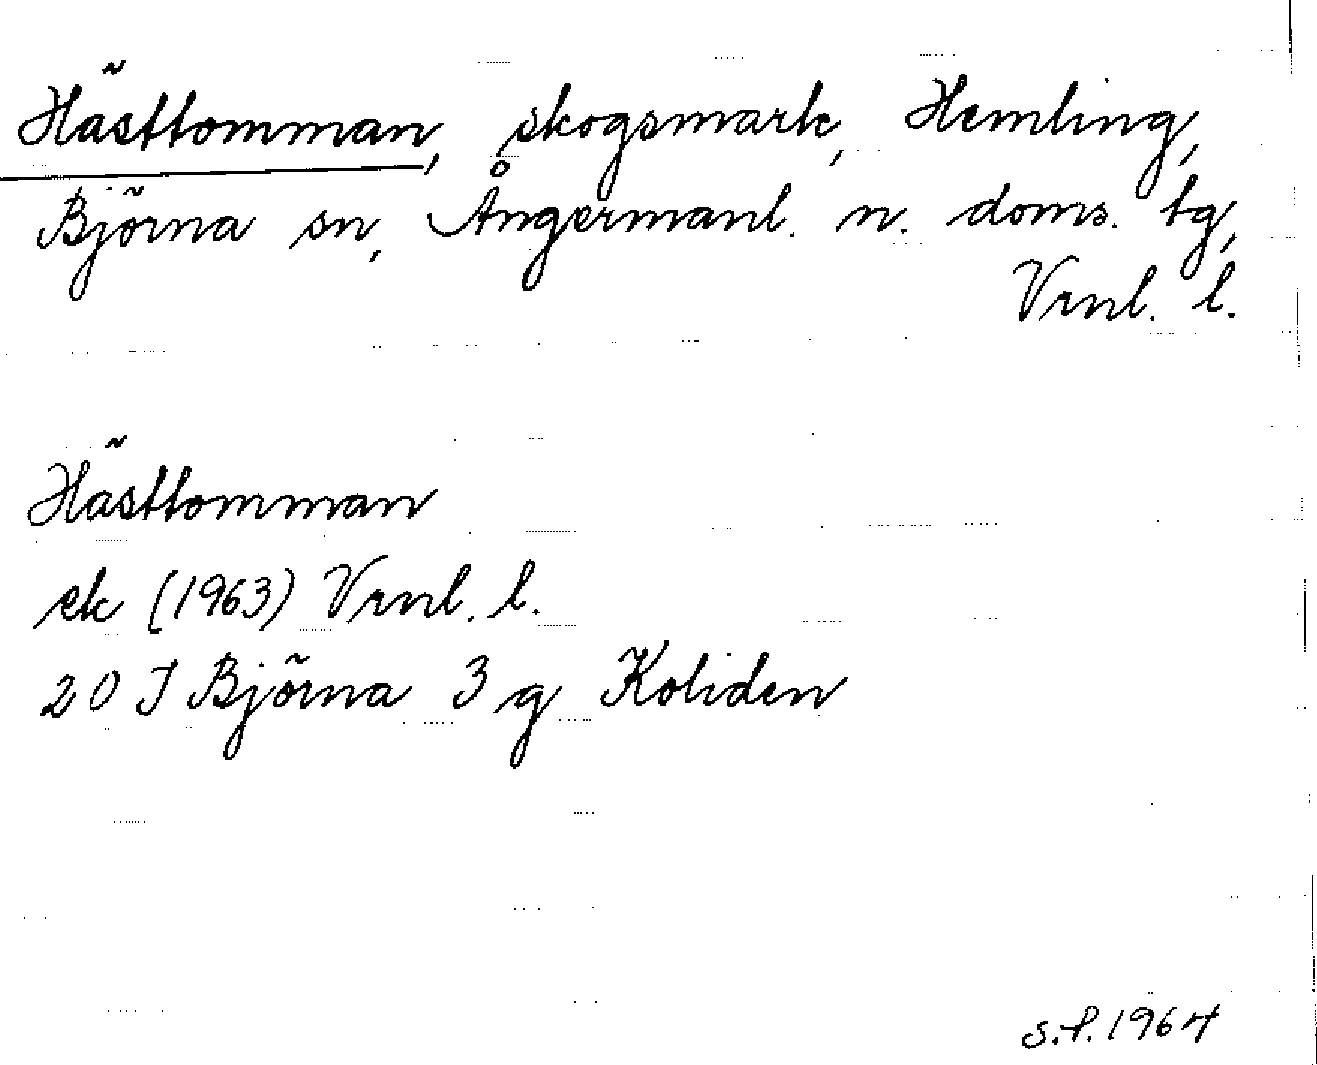 Hästtomman, skogsmark, Hemling,
Björna sn, Ångermanl. n. doms. tg,
Vrnl. l.
Hästtomman
ek (1963) Vrnl. l.
20 J Björna 3 g Koliden
S.f. 1964